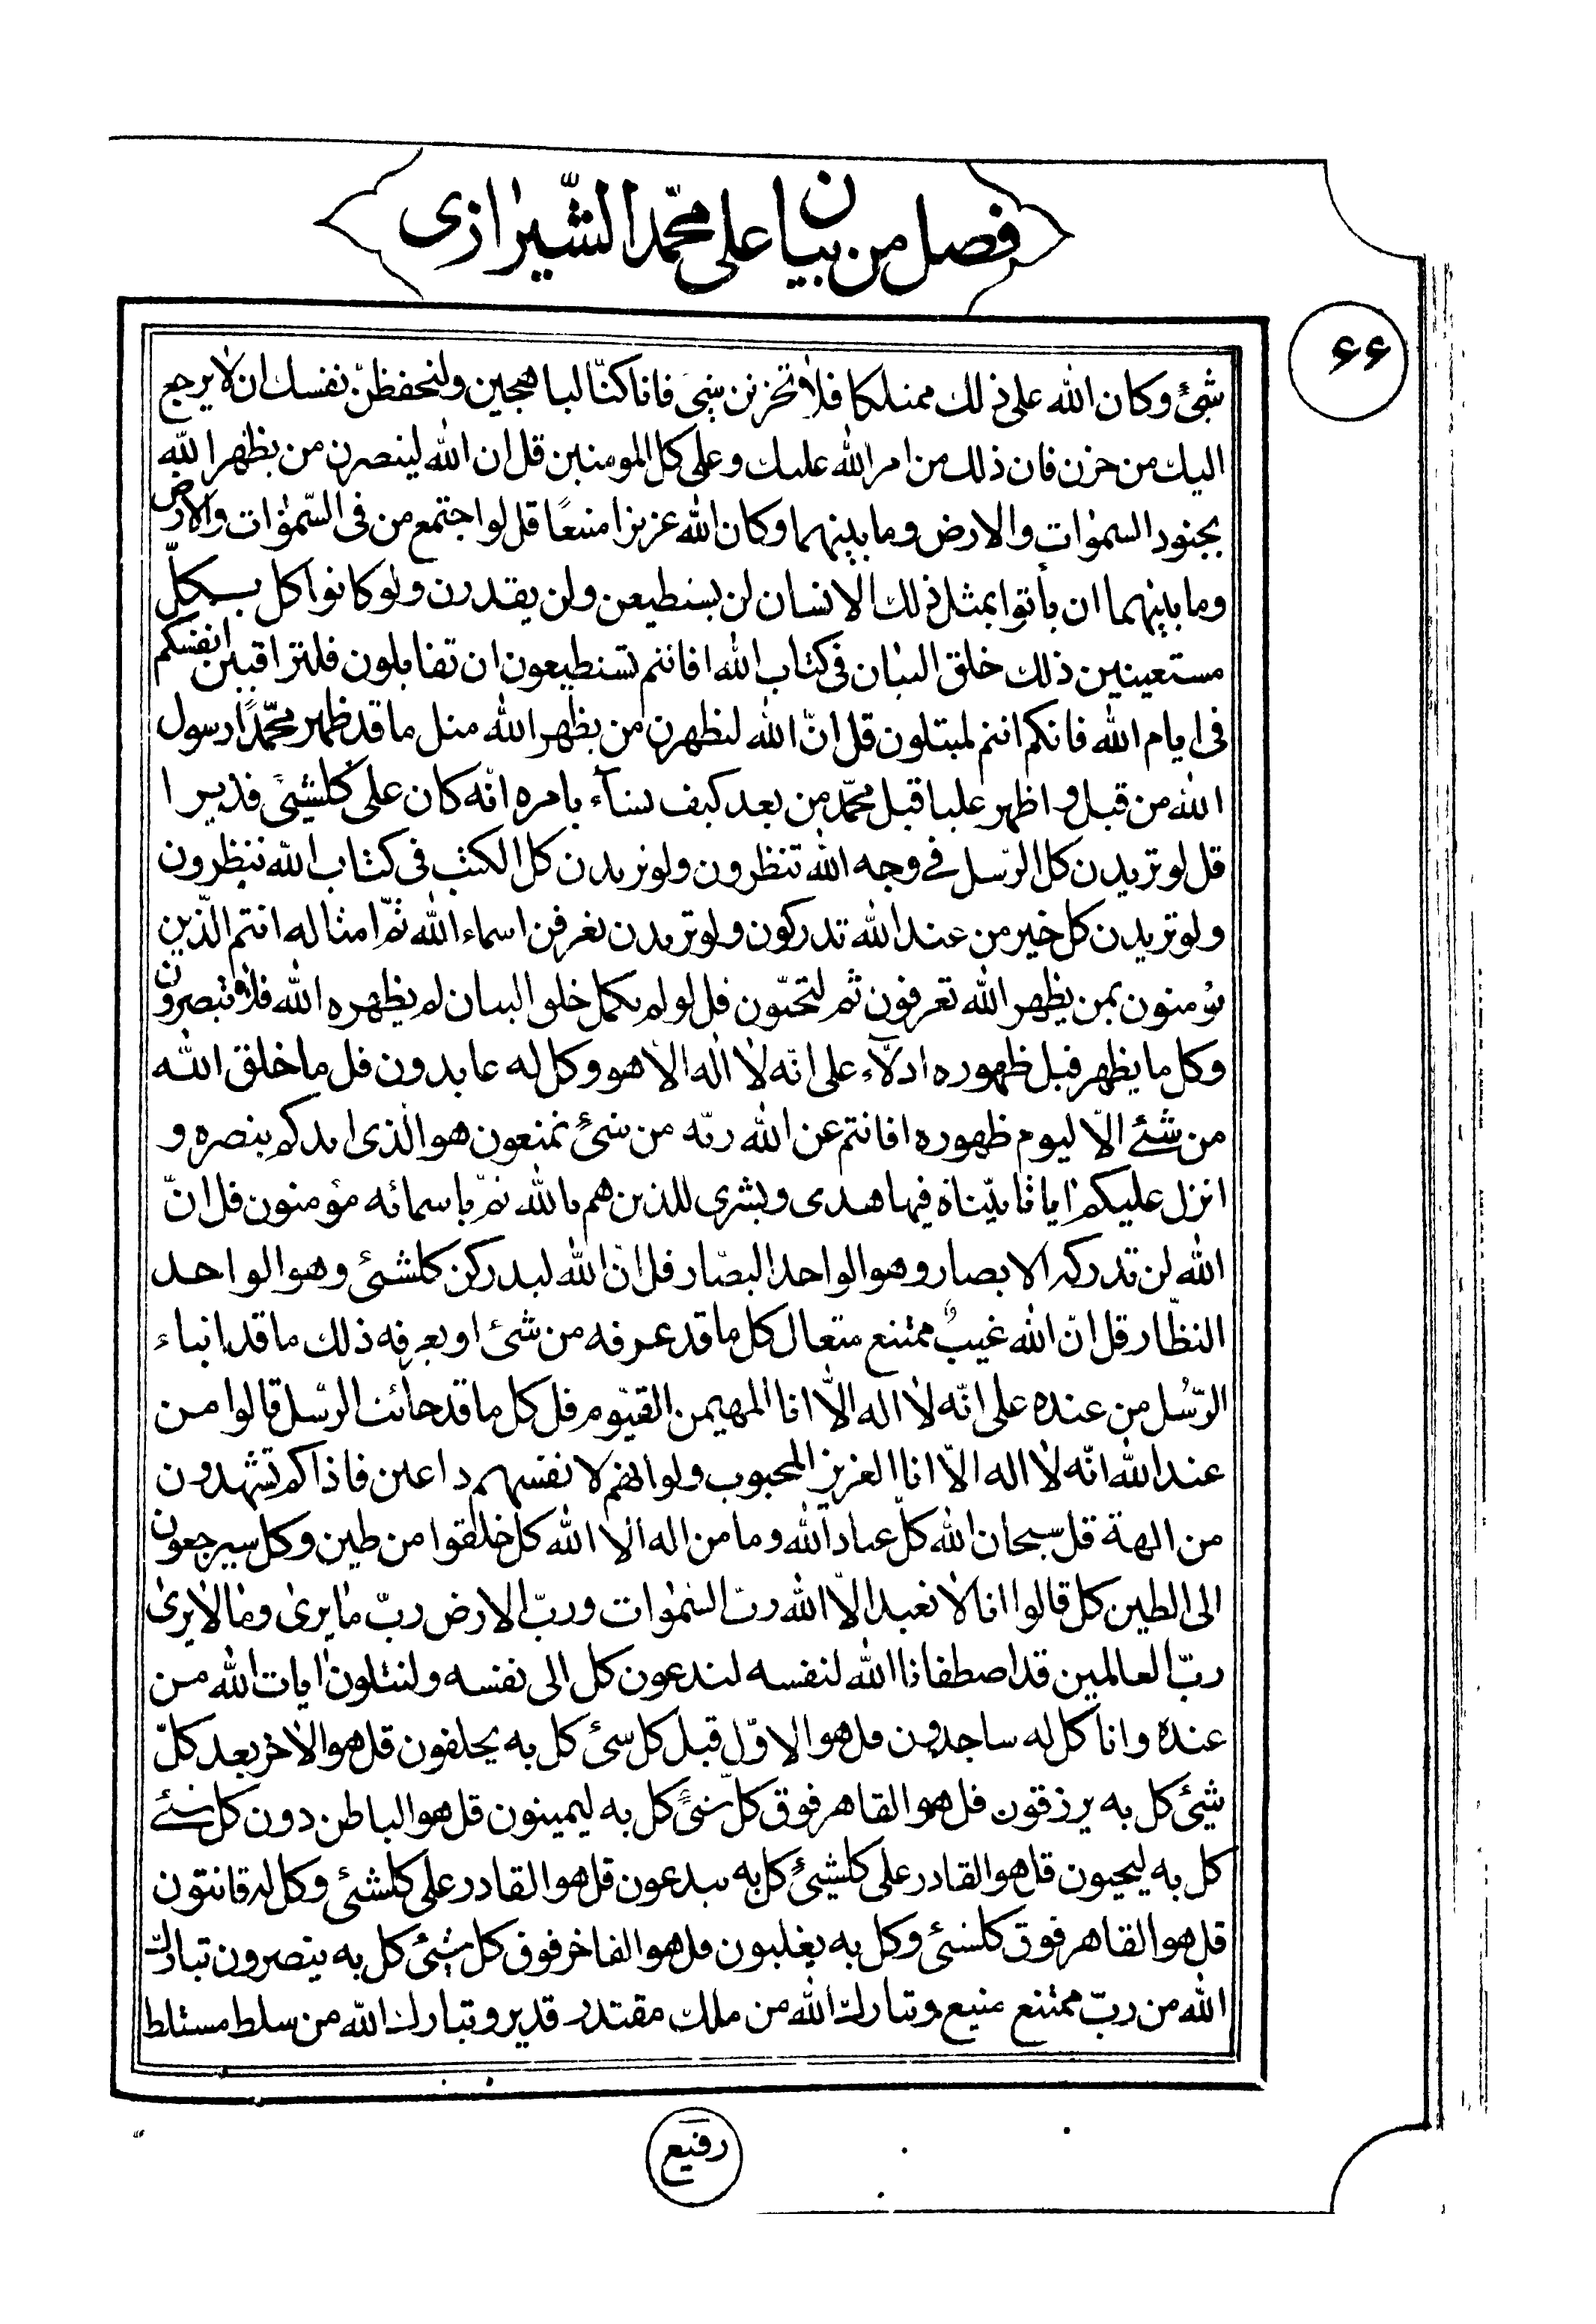 فصل من بيان على محمد الشيرازى
۶۶
شئ وكان الله على ذلك ممتلكا فلا تحزنن بشئ فانا كنا لباهجين ولنحفظن نفسك ان لا يرجع
اليك من حزن فان ذلك من امر الله عليك وعلى كل المومنين قل ان الله لينصرن من يظهر الله
بجنود السموات والارض وما بينهما وكان الله عزيزا منيعًا قل لو اجتمع من فى السموات والارض
وما بينهما ان يأتوا بمثل ذلك الانسان لن يستطيعن ولن يقدرن ولو كانوا كل بكل
مستعينين ذلك خلق البيان فى كتاب الله افانتم تستطيعون ان تقابلون فلتراقبن انفسكم
فى ايام الله فانكم انتم لمبتلون قل انّ الله لنظهرن من يظهر الله مثل ما قد ظهر محمّدًا رسول
الله من قبل و اظهر عليا قبل محمّد من بعد كيف يشآء بامره انّه كان على كلشيئ قديرا
قل لو تريدن كل الرسل فى وجه الله تنظرون ولو تريدن كل الكتب فى كتاب الله تنظرون
ولو تريدن كل خير من عند الله تدركون ولو تريدن تعرفن اسماء الله ثمّ امثاله انتم الّذين
تؤمنون بمن يظهر الله تعرفون ثم لتحبّون قل لو لم يكمل خلق البيان لم يظهره الله فلا تبصرون
وكل ما يظهر قبل ظهوره ادلّآء على انّه لا اله الا هو وكل له عابدون قل ما خلق الله
من شئ الّا ليوم ظهوره افانتم عن الله ربّه من شئ تمنعون هو الّذى ايدكم بنصره و
انزل عليكم اياتا بيّناة فيها هدى وبشرى للذين هم بالله ثمّ باسمائه مؤمنون قل انّ
الله لن تدركه الابصار وهو الواحد البصّار قل انّ الله ليدركن كلشئ وهو الواحد
النظّار قل انّ الله غيبٌ ممتنع متعال كل ما قد عرفه من شئ او يعرفه ذلك ما قد انباء
الرّسُل من عنده على انّه لا اله الّا انا المهيمن القيّوم قل كل ما قد جائت الرسل قالوا من
عند الله انّه لا اله الّا انا العزيز المحبوب ولو انهم لانفسهم داعين فاذا كم تشهدون
من الهة قل سبحان الله كلّ عباد الله وما من اله الا الله كل خلقوا من طين وكل سيرجعون
الى الطين كل قالوا انا لا نعبد الّا الله ربّ السموات وربّ الارض ربّ ما يرى وما لا يرى
ربّ العالمين قد اصطفانا الله لنفسه لندعون كل الى نفسه ولنتلون ايات الله من
عنده وانا كل له ساجدون قل هو الاوّل قبل كل شئ كل به يخلقون قل هو الاخر بعد كلّ
شيئ كل به يرزقون قل هو القاهر فوق كلّ شئ كل به ليميتون قل هو الباطن دون كل شئ
كل به ليحيون قل هو القادر على كلشيئ كل به يبدعون قل هو القادر على كلشئ وكل له قانتون
قل هو القاهر فوق كلشئ وكل به يغلبون قل هو الفاخر فوق كل شئ كل به ينصرون تبارك
الله من ربّ ممتنع منيع وتبارك الله من ملك مقتدر قدير وتبارك الله من سلط مستلط
رفيع